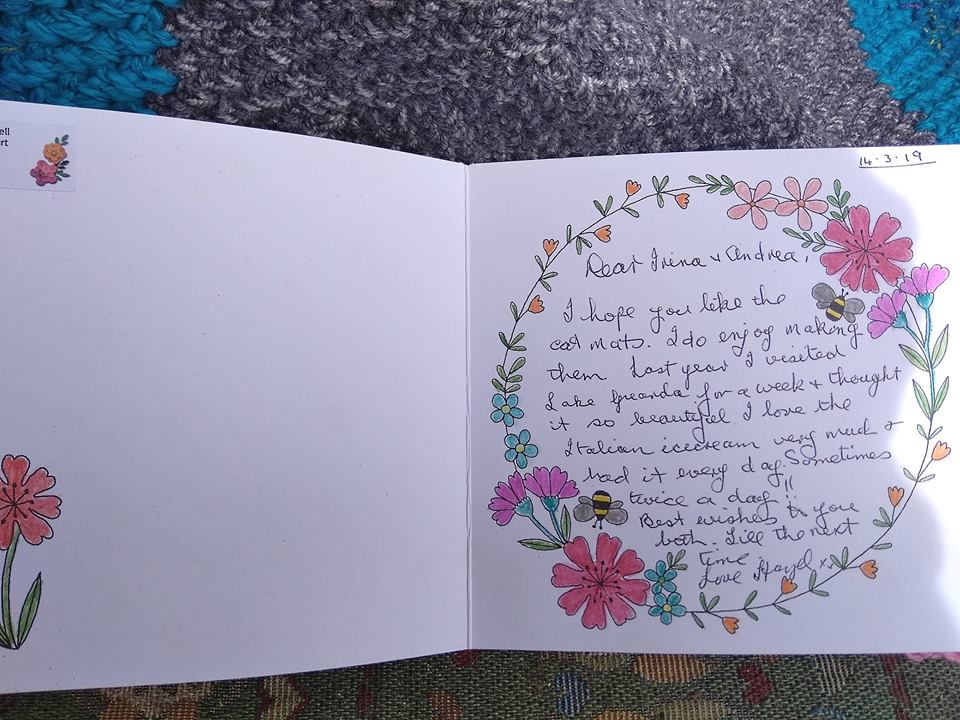 ell
rt
14.3.19
Dear Irina + Andrea,
I hope you like the
cat mats. I do enjoy making
them. Last year I visited
Lake for a week + thought
it so beautiful. I love the
Italian icecream very much +
had it every day. Sometimes
twice a day!!
Best wishes to you
both. Till the next
time
Love Hazel xx